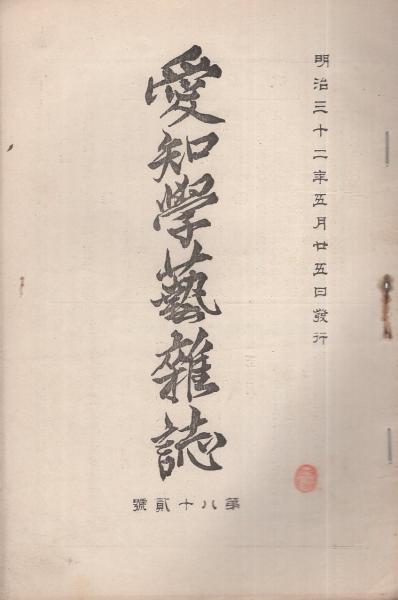 明治三十二年五月廿五日發行
愛知學藝雜誌
第八十貳號